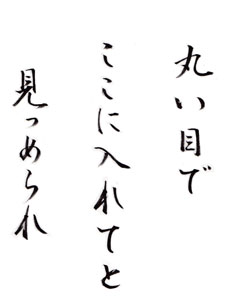 丸い目で
ここに入れてと
見つめられ